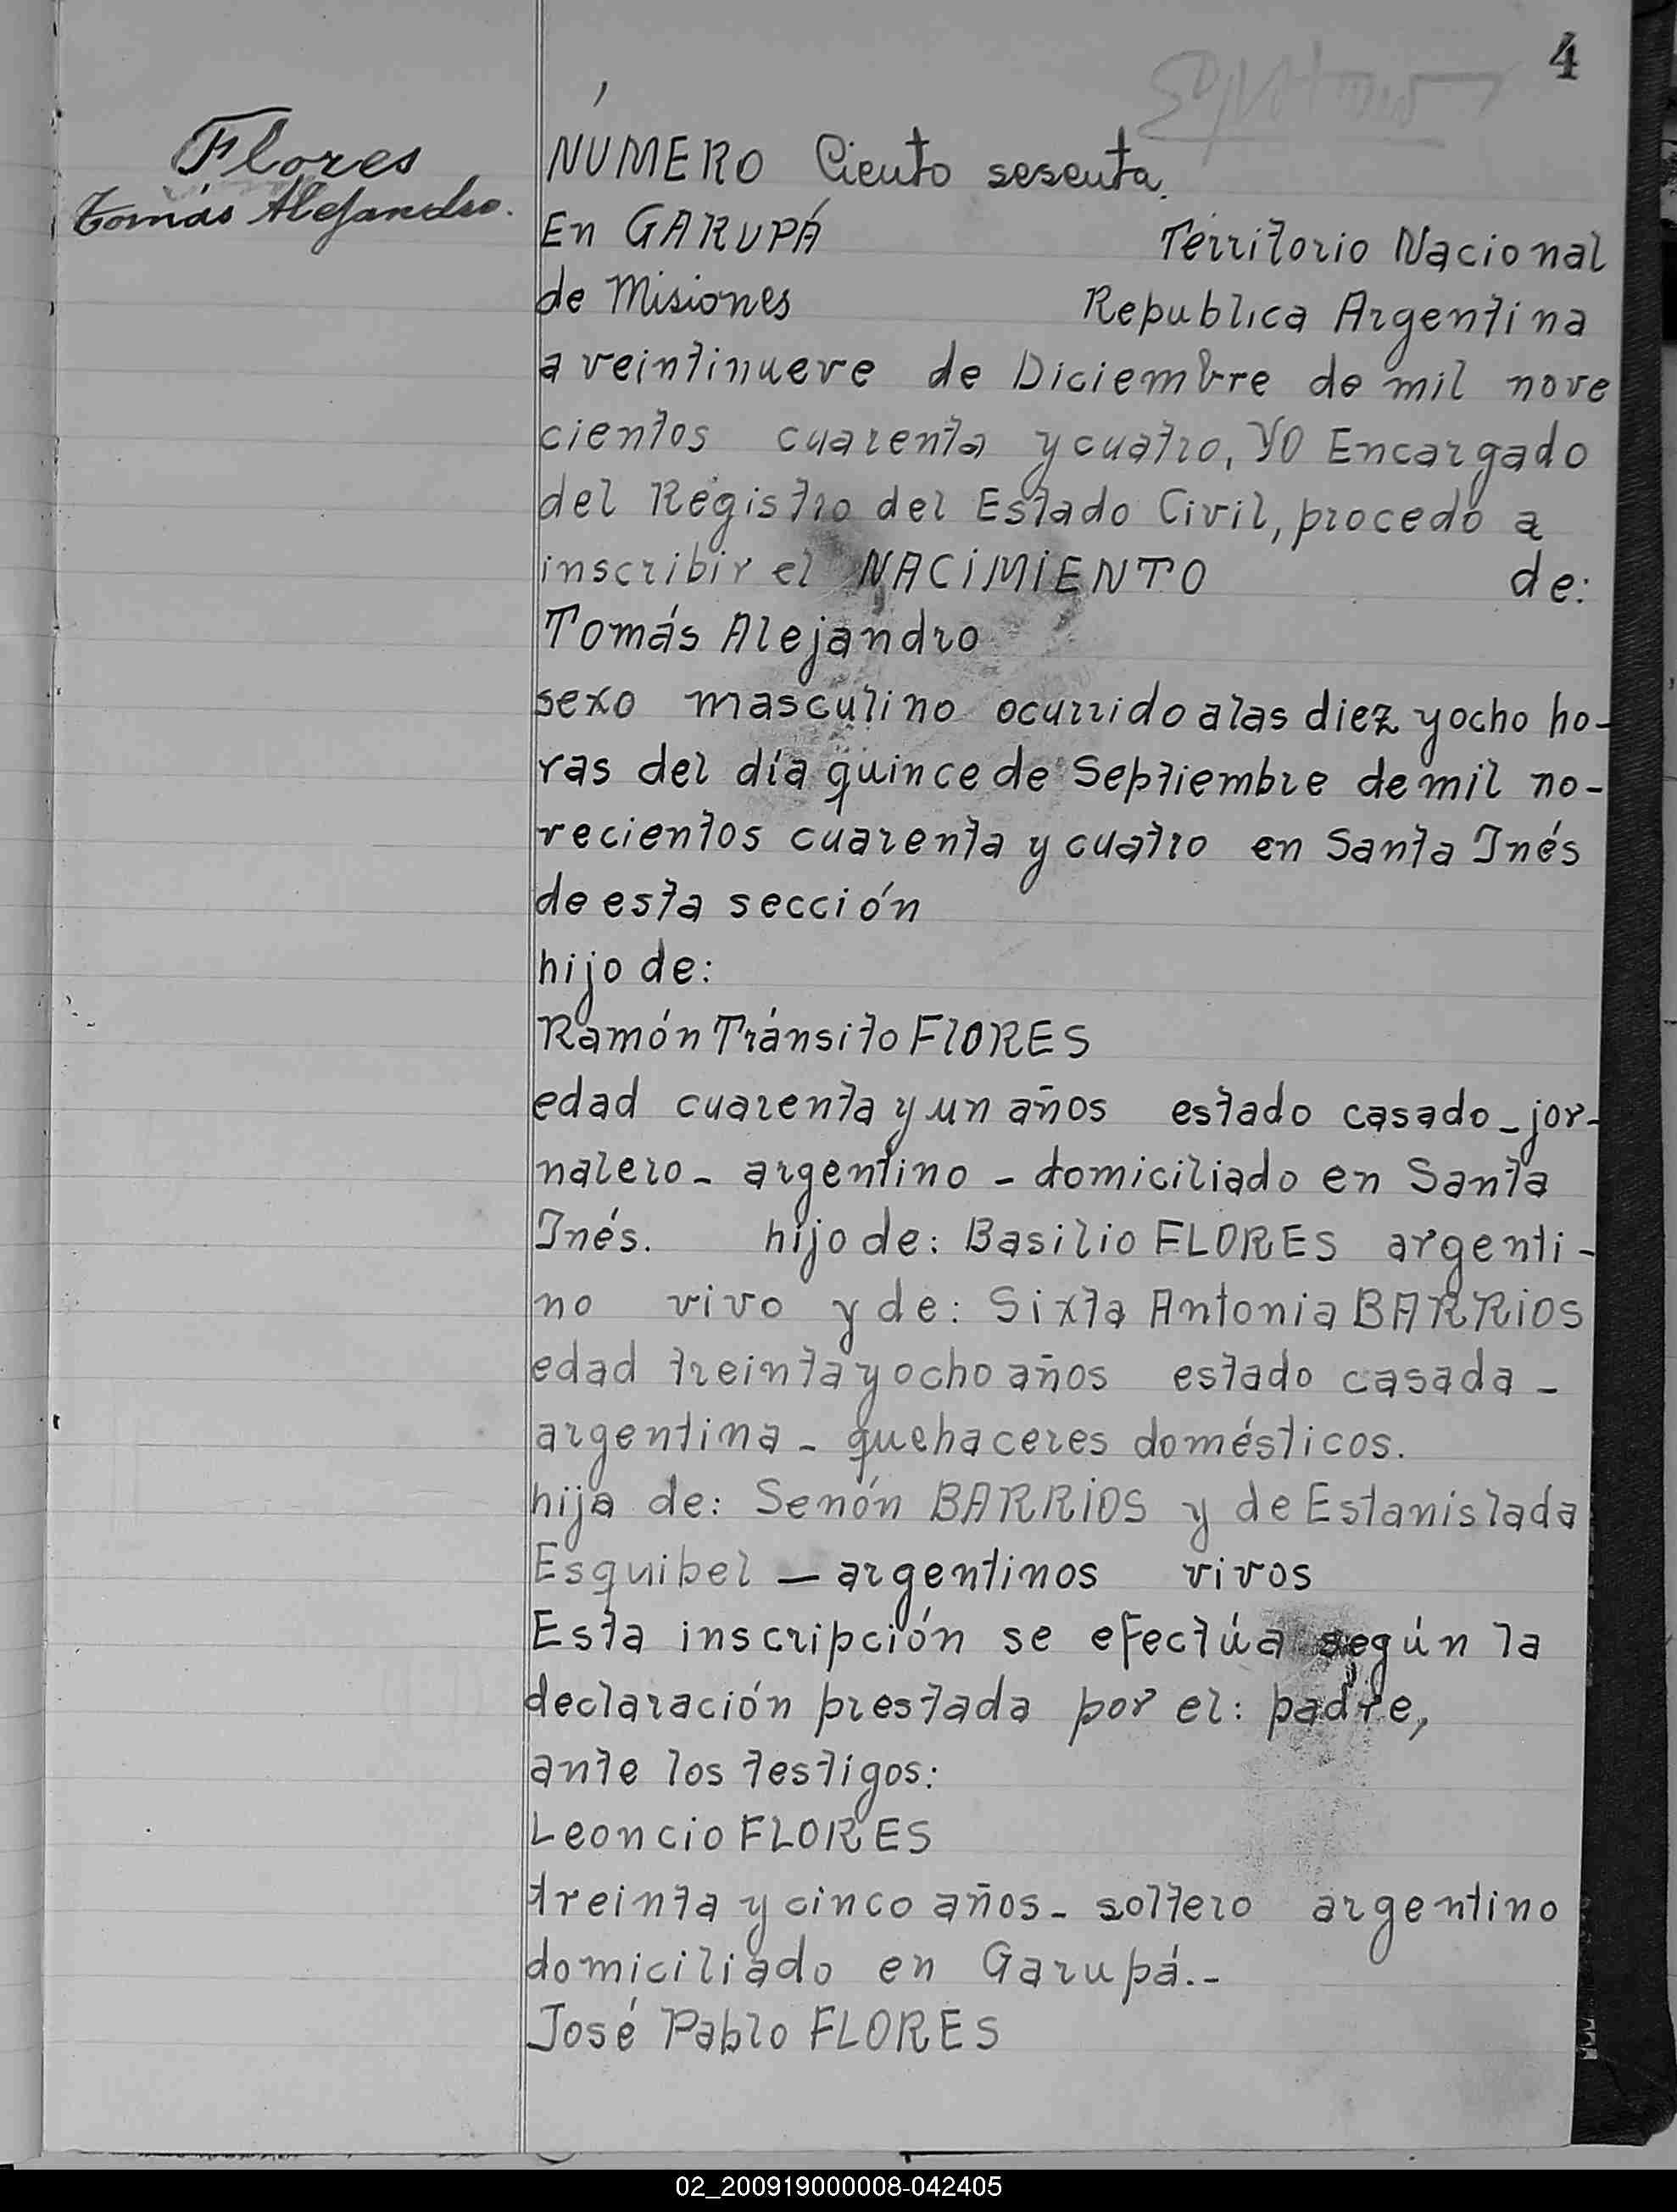 4
Flores
Tomás Alejandro.
NÚMERO Ciento sesenta.
En GARUPÁ Territorio Nacional
de Misiones Republica Argentina
a veintinueve de Diciembre de mil nove
cientos cuarenta y cuatro, YO Encargado
del Registro del Estado Civil, procedo a
inscribir el NACIMIENTO de:
Tomás Alejandro
sexo masculino ocurrido a las diez y ocho ho-
ras del día quince de Septiembre de mil no-
vecientos cuarenta y cuatro en Santa Inés
de esta sección
hijo de:
Ramón Tránsito FLORES
edad cuarenta y un años estado casado - jor-
nalero - argentino - domiciliado en Santa
Inés. hijo de: Basilio FLORES argenti-
no vivo y de: Sixta Antonia BARRIOS
edad treinta y ocho años estado casada -
argentina - quehaceres domésticos.
hija de: Senón BARRIOS y de Estanislada
Esquibel — argentinos vivos
Esta inscripción se efectúa según la
declaración prestada por el: padre,
ante los testigos:
Leoncio FLORES
treinta y cinco años - soltero argentino
domiciliado en Garupá.-
José Pablo FLORES
02_200919000008-042405